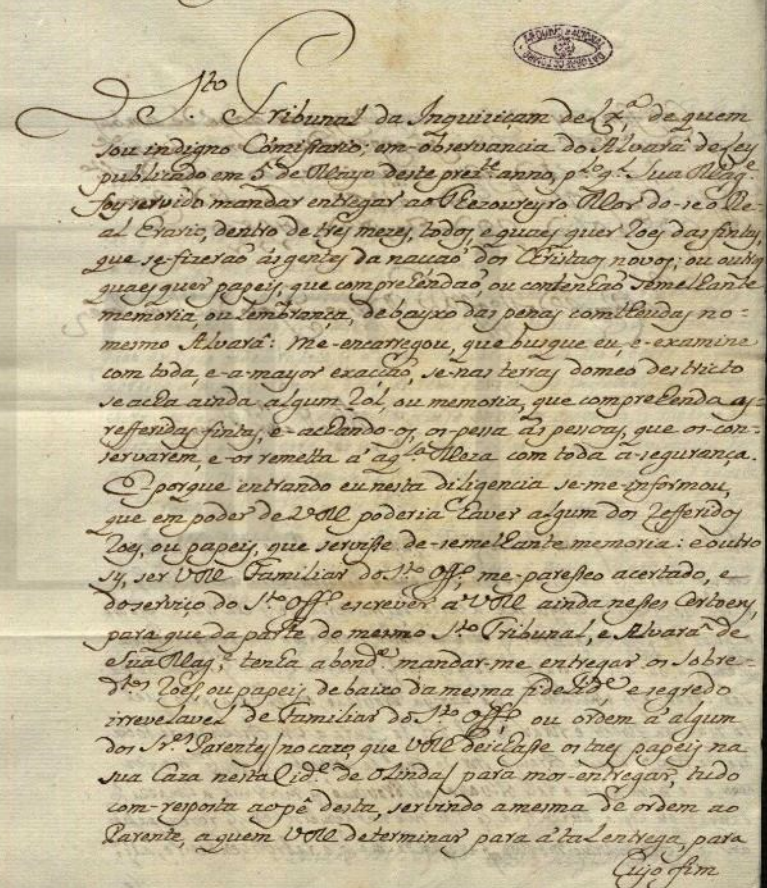 O S.to Tribunal da Inquiziçam de Lx.a de quem
sou indigno Cómissario; em-observancia do Alvarâ de Ley
publicado em 5 de Mayo deste prez.te anno, p.lo q.l Sua Mag.e
foy servido mandar entregar ao Thezoureyro Mor do-seo Re-
al Erario, dentro de tres mezes, todos, e quaes quer Roes das fintas,
que se-fizerão ás gentes da nacção dos Christaos novos; ou outros
quaes quer papeis, que comprehendaõ, ou contenhaõ semelhante
memoria, ou lembrança, debayxo das penas comtheudas no=
mesmo Alvarâ: me-encarregou, que busque eu, e-examine
com toda, e-a-mayor exacção, se-nas terras do meo destricto
se acha ainda algum Rol, ou memoria, que comprehenda as=
refferidas fintas, e-achando-os, os-pessa ás pessoas, que os-con-
servarem, e-os remetta á aq.la Meza com toda a-segurança.
E-porque entrando eu nesta diligencia se-me-informou,
que em poder de VM poderia haver algum dos Refferidos
Roes, ou papeis, que servisse de-semelhante memoria: e outro
sy, ser VM Familiar do S.to Off.o, me-paresseo acertado, e
do serviço do S.to Off.o escrever a VM ainda nesses Certoens,
para que da parte do mesmo S.to Tribunal, e Alvarâ de
Sua Mag.e tenha a bond.e mandar-me entregar os sobre-
d.tos Roes, ou papeis debaixo da mesma fidelid.e e segredo
irrevelavel de Familiar do S.to Off.o, ou ordem a algum
dos Sr.es Parentes/ no cazo, que VM deichasse os taes papeis na
sua Caza nesta Cid.e de Olinda/ para mos-entregar, tudo
com-resposta ao pê desta, servindo a mesma de ordem ao
Parente, a quem VM determinar para a tal entrega, para
Cujo fim
ARQUIVO NACIONAL
DA TORRE DO TOMBO